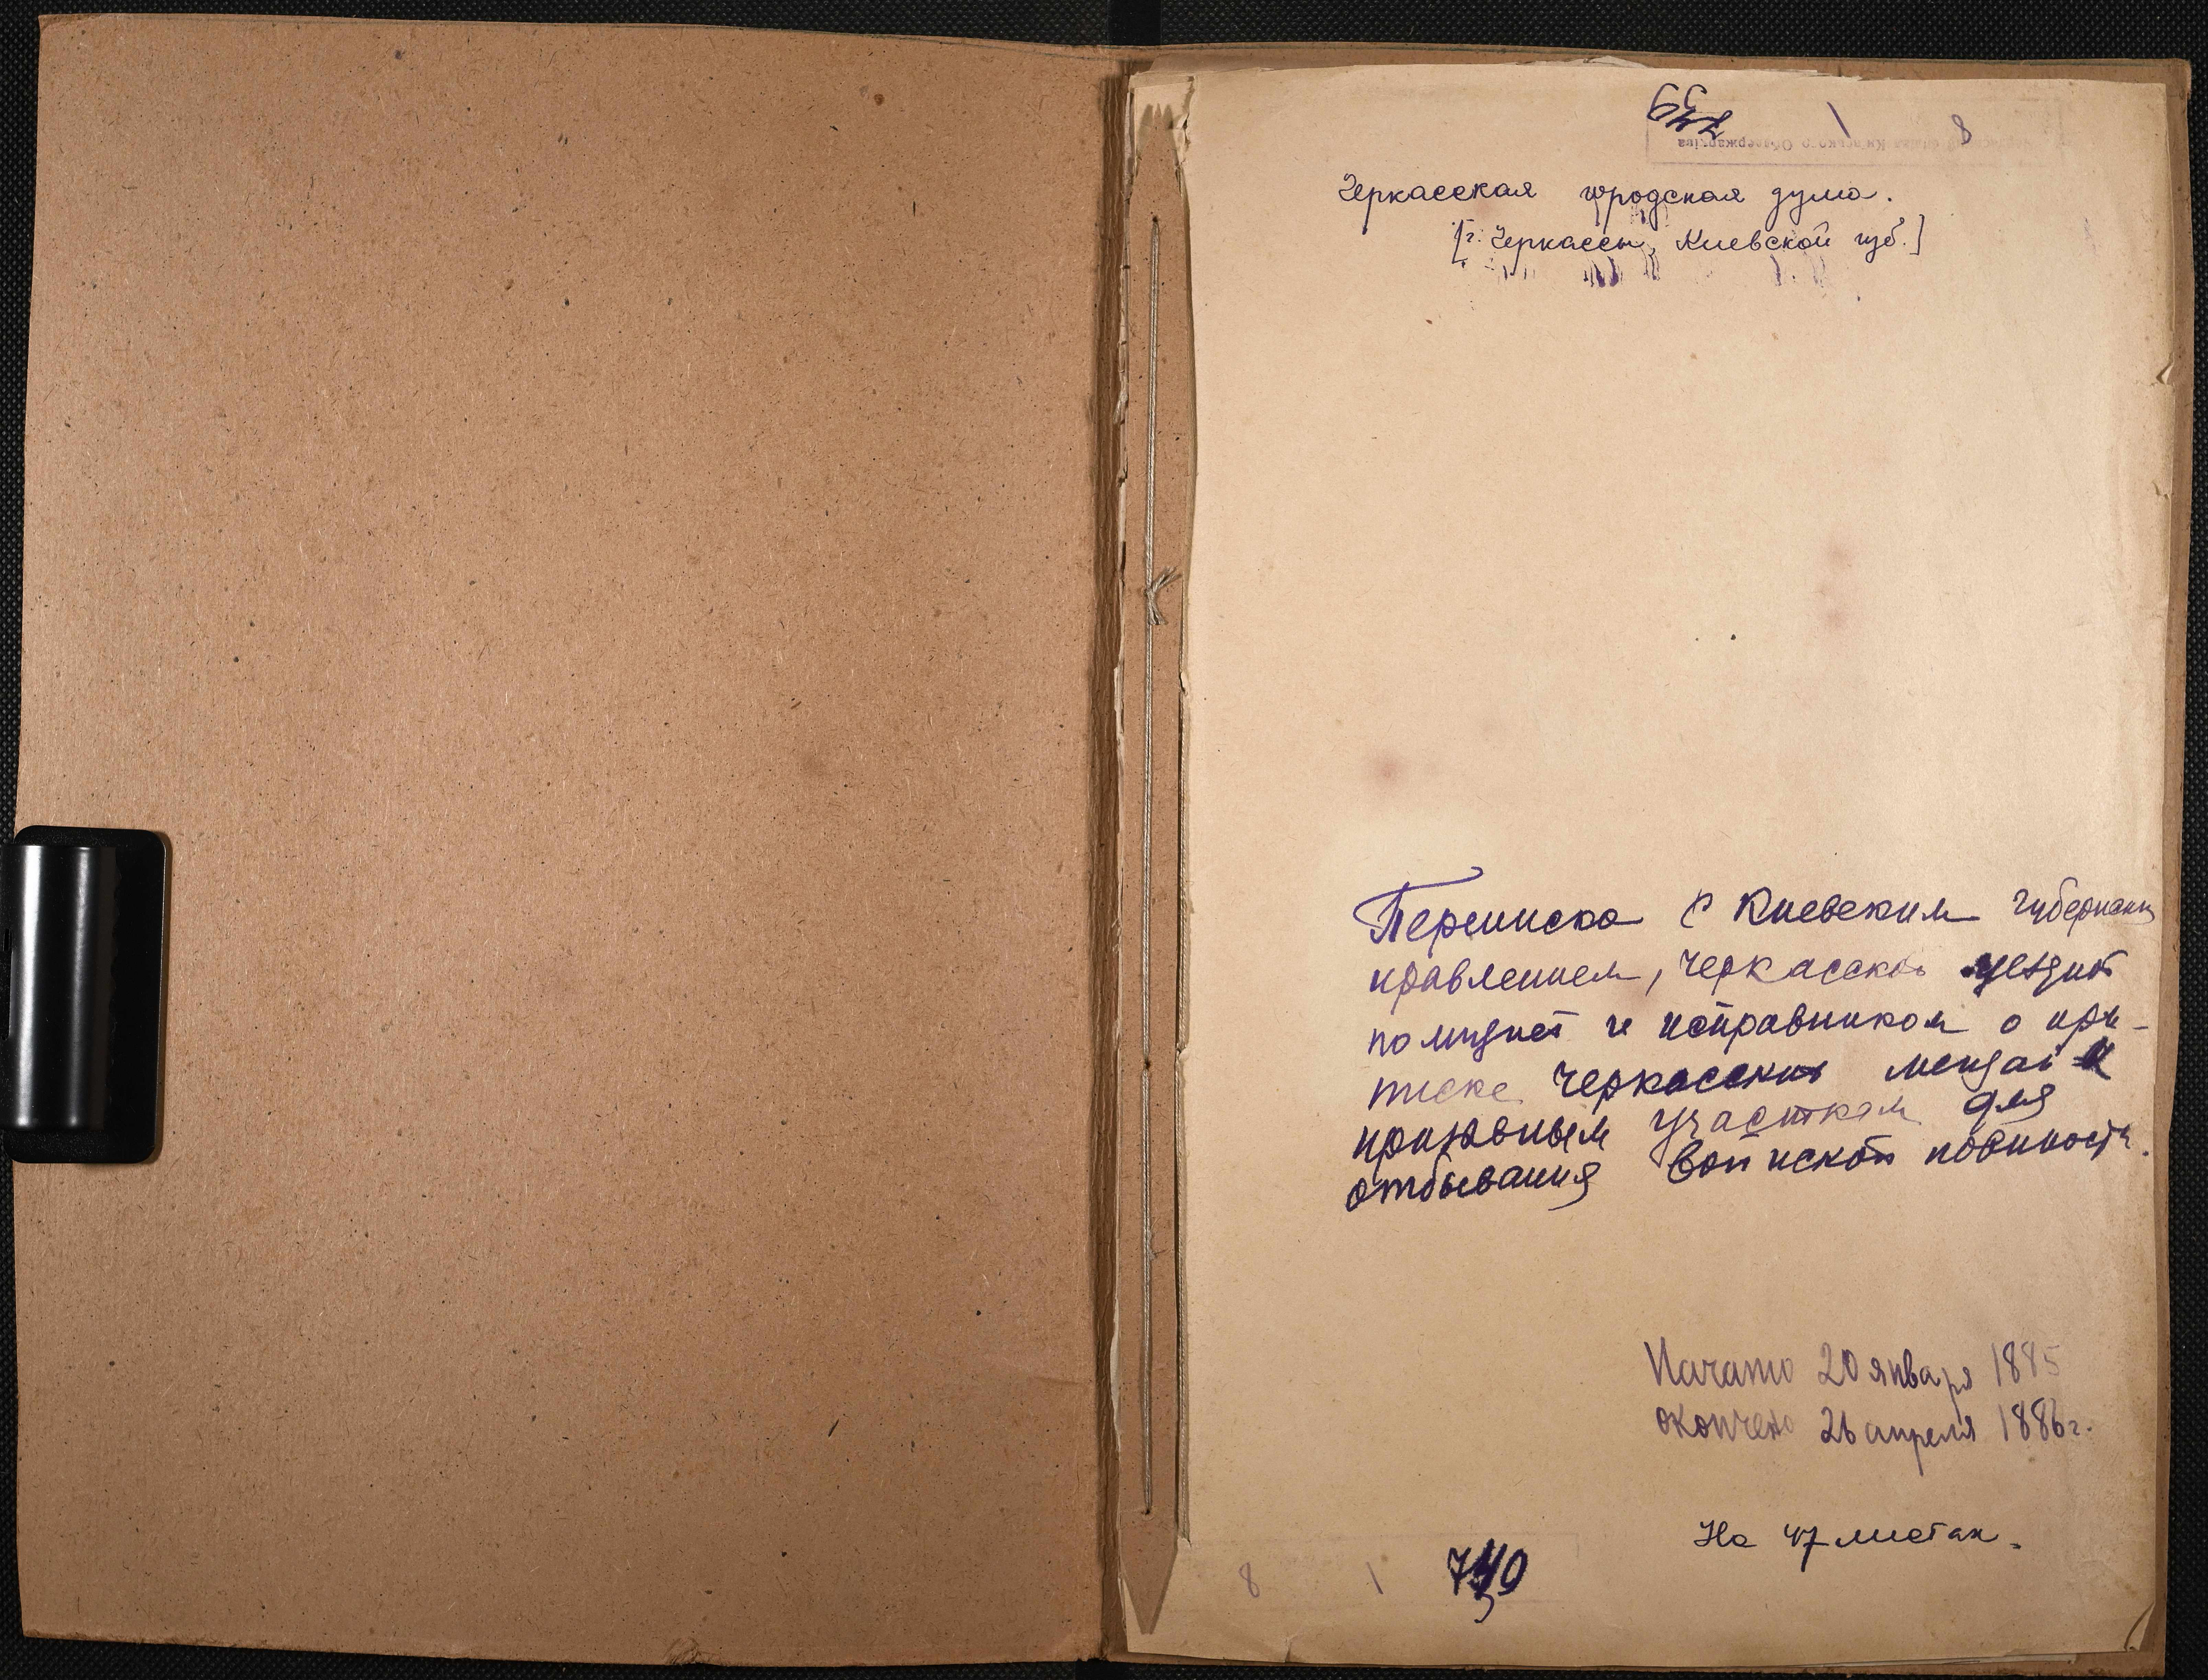 8
Черкасская городская дума.
[г. Черкассы, Киевской губ.]
Переписка с Киевским губернским
правлением, черкасской уездной
полицией и исправником о при-
писке черкасских мещан к
призывным участкам для
отбывания воинской повинности.
Начато 20 января 1885
окончено 26 апреля 1886 г.
На 47 листах.
8 1